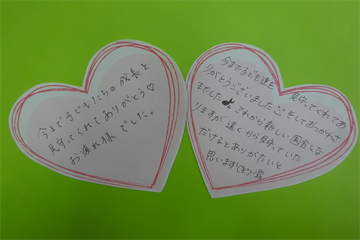 今まで子どもたちの成長を
見守ってくれてありがとう♡
お疲れ様でした。
今まで子ども達を 見守ってくれてあ
りがとうございました
これから新しい園舎にな
りますが遠くから見守っていた
だけるとありがたいと
思います